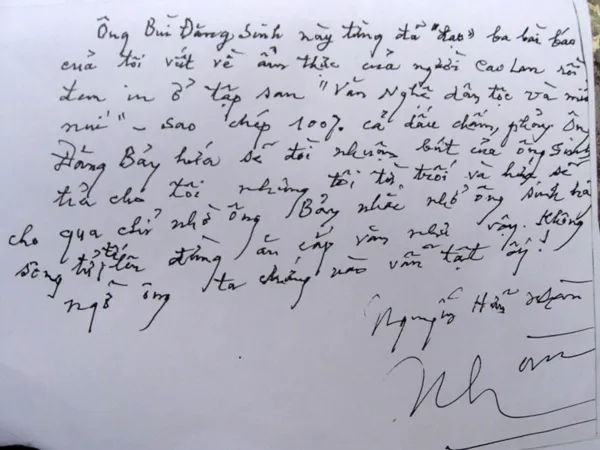 Ông Bùi Đăng Sinh này từng đã "đạo" ba bài báo
của tôi viết về ẩm thực của người Cao Lan rồi
đem in ở tập san "Văn Nghệ dân tộc và miền
núi" - sao chép 100% cả dấu chấm, phẩy. Ông
Đăng Bảy hứa sẽ đòi nhuận bút của ông Sinh
trả cho tôi nhưng tôi từ trối và hứa sẽ
cho qua chỉ nhờ ông Bảy nhắc nhở ông Sinh là
sống tử tế lên đừng ăn cắp văn như vậy. Không
ngờ ông ta chứng nào vẫn tật ấy!
Nguyễn Hữu Nhàn
Nhàn